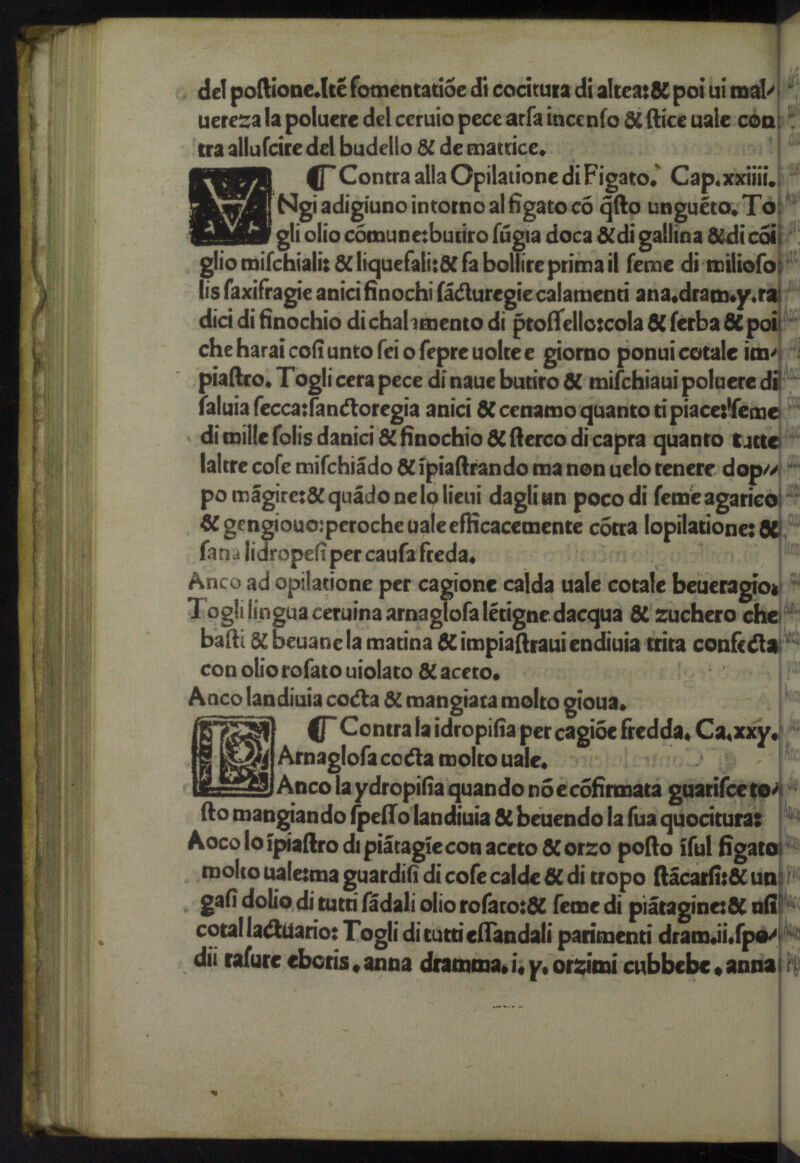 del poſtione.Itē fomentatiōe di cocitura di altea:& poi ui mal⸗
uereza la poluere del ceruio pece arſa incenſo & ſtice uale con
tra alluſcire del budello & de matrice.
¶ Contra alla Opilatione di Figato. Cap.xxiiii.
VNgi adigiuno intorno al figato cō q̄ſto unguēto. To
gli olio cōmune:butiro ſūgia doca & di gallina & di cōi
glio miſchiali: & liquefali:& fa bollire prima il ſeme di milioſo
lis ſaxifragie anici finochi ſācturegie calamenti ana.dram.y.ra
dici di finochio di chalamento di p̄toſſello:cola & ſerba & poi
che harai coſi unto ſei o ſepre uolte e giorno ponui cotale im⸗
piaſtro. Togli cera pece di naue butiro & miſchiaui poluere di
ſaluia ſecca:ſanctoregia anici & cenamo quanto ti piace:ſeme
di mille ſolis danici & finochio & ſterco di capra quanto tutte
laltre coſe miſchiādo & īpiaſtrando ma non uelo tenere dop⸗
po māgire:& quādo ne lo lieui dagli un poco di ſeme agarico
& gengiouo:peroche uale efficacemente cōtra lopilatione: &
ſana lidropeſi per cauſa freda.
Anco ad opilatione per cagione calda uale cotale beueragio:
Togli lingua ceruina arnagloſa lētigne dacqua & zuchero che
baſti & beuane la matina & impiaſtraui endiuia trita confecta
con olio roſato uiolato & aceto.
Anco landiuia cocta & mangiata molto gioua.
¶ Contra la idropiſia per cagiōe fredda. Ca.xxy.
Arnagloſa cocta molto uale.
Anco la ydropiſia quando nō e cōfirmata guariſce to⸗
ſto mangiando ſpeſſo landiuia & beuendo la ſua quocitura:
Aoco lo īpiaſtro di piātagīe con aceto & orzo poſto īſul figato
molto uale:ma guardiſi di coſe calde & di tropo ſtācarſi:& un
gaſi dolio di tutti ſādali olio roſato:& ſeme di piātagine:& uſi
cotal lactuario: Togli di tutti eſſandali parimenti dram.ii.ſpo⸗
dii raſure eboris.anna dramma.i.y.orzimi cubbebe.anna